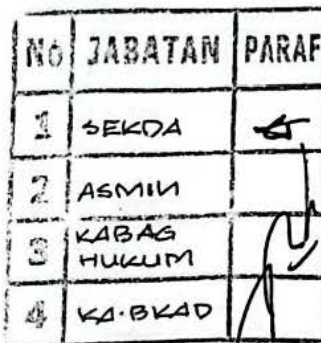 No JABATAN PARAF
1 SEKDA
2 ASMIN
3 KABAG
HUKUM
4 KA.BKAD